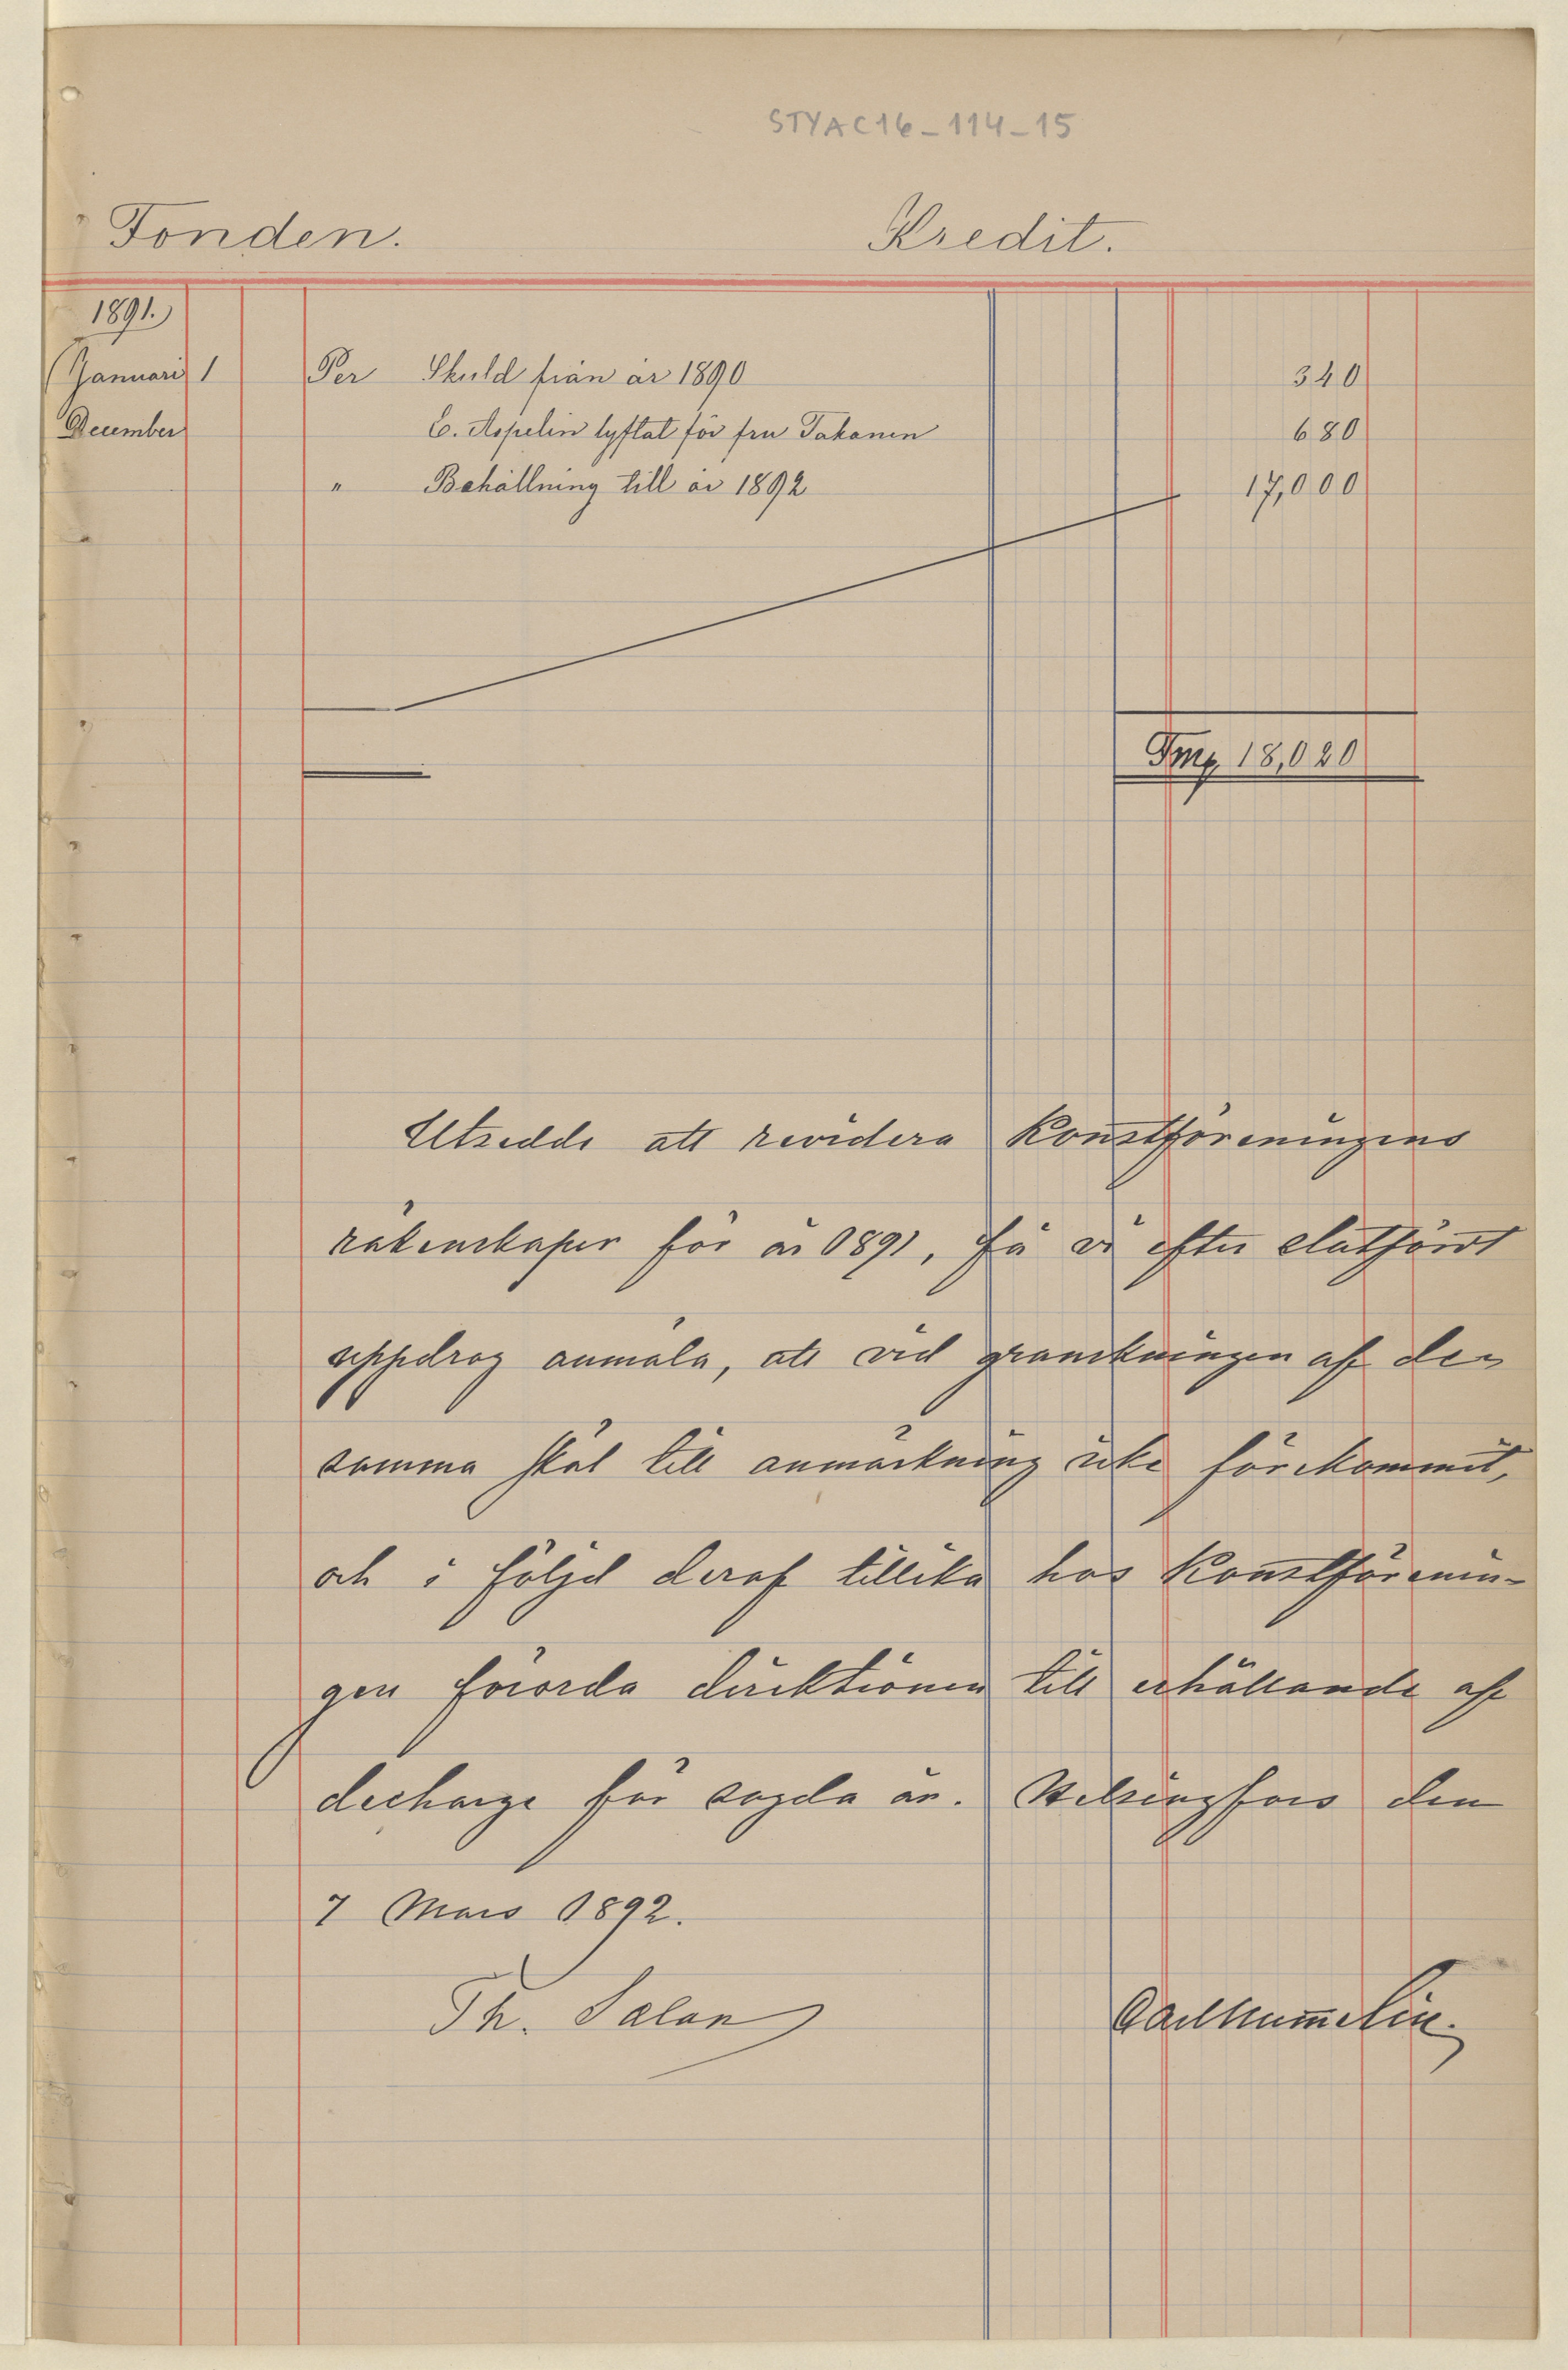 STYAC16-114-15
Fonden. Kredit.
1891.
Januari 1 Per Skuld från år 1890 340
December E. Aspelin lyftat för fru Takanen 680
" Behållning till år 1892 17,000
Fmk 18,020
Utsedde att revidera Konstföreningens
räkenskaper för år 1891, få vi efter slutfördt
uppdrag anmäla, att vid granskningen af den
samma skäl till anmärkning icke förekommit,
och i följd deraf tillika hos Konstförenin-
gen förorda direktionen till erhållande af
decharge för sagda år. Helsingfors den
7 Mars 1892.
Th. Salan Carl Hummelin.